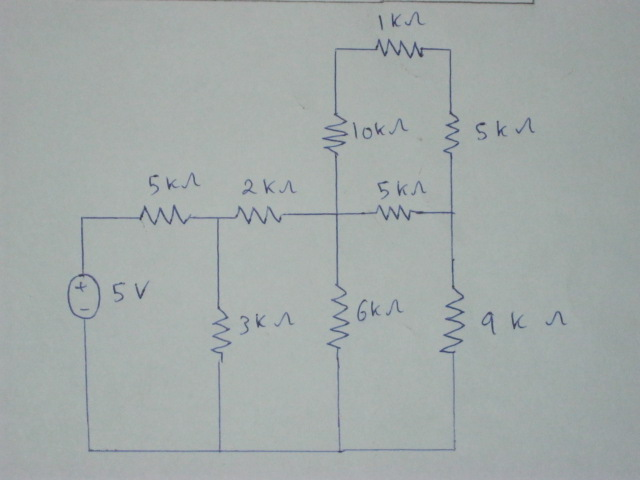 1kΩ
10kΩ
5kΩ
5kΩ
2kΩ
5kΩ
+
-
5V
3kΩ
6kΩ
9kΩ